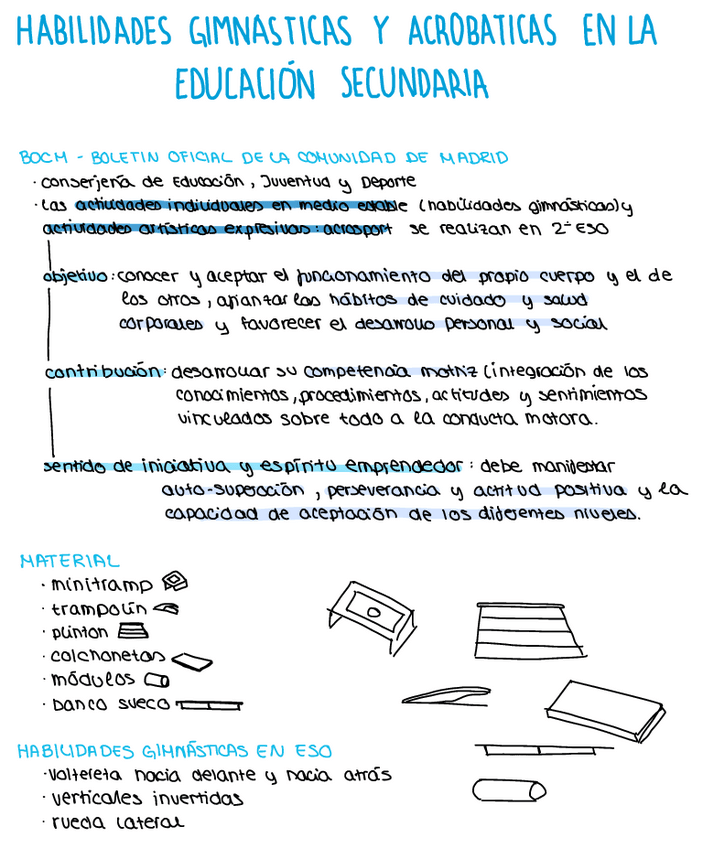 HABILIDADES GIMNASTICAS Y ACROBATICAS EN LA
EDUCACIÓN SECUNDARIA
BOCM - BOLETIN OFICIAL DE LA COMUNIDAD DE MADRID
· conserjería de Educación, Juventud y Deporte
· Las actividades individuales en medio estable (habilidades gimnásticas) y
actividades artísticas expresivas: acrosport se realizan en 2º ESO
objetivo: conocer y aceptar el funcionamiento del propio cuerpo y el de
los otros, afianzar los hábitos de cuidado y salud
corporales y favorecer el desarrollo personal y social
contribución: desarrollar su competencia motriz (integración de los
conocimientos, procedimientos, actitudes y sentimientos
vinculados sobre todo a la conducta motora.
sentido de iniciativa y espíritu emprendedor: debe manifestar
auto-superación, perseverancia y actitud positiva y la
capacidad de aceptación de los diferentes niveles.
MATERIAL
· minitramp
· trampolín
· plinton
· colchonetas
· módulos
· banco sueco
HABILIDADES GIMNÁSTICAS EN ESO
· voltereta hacia delante y hacia atrás
· verticales invertidas
· rueda lateral